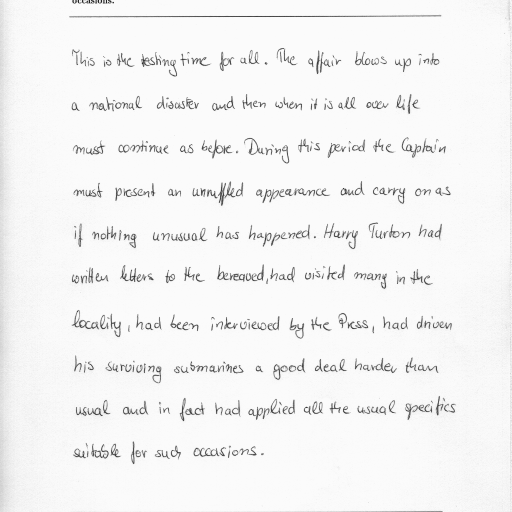 occasions.
This is the testing time for all. The affair blows up into
a national disaster and then when it is all over life
must continue as before. During this period the Captain
must present an unruffled appearance and carry on as
if nothing unusual has happened. Harry Turton had
written letters to the bereaved, had visited many in the
locality, had been interviewed by the Press, had driven
his surviving submarines a good deal harder than
usual and in fact had applied all the usual specifics
suitable for such occasions.